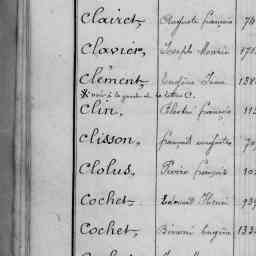 Clairet, Auguste françois 74
Clavier, Joseph
Clément, Eugène Jean 138
* voir à la garde et la lettre C.
Clin, Célestin françois 113
Clisson, françois
Clolus, Pierre françois
Cochet, Edouard Henri 939
Cochet, Eugène 133